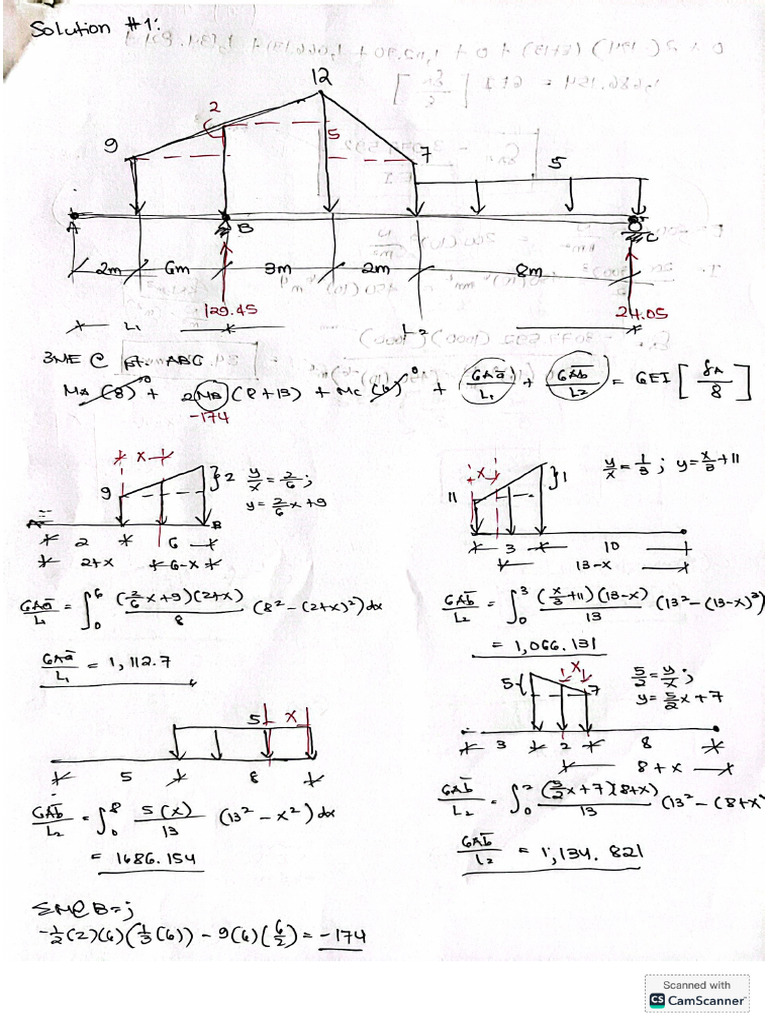 Solution #1:
12
2
9
5
7
5
A
B
C
2m
6m
3m
2m
8m
129.45
24.05
L1
L2
3ME @ pt. ABC
MA(8)⁰ + 2MB(8+13) + Mc(13)⁰ + 6Aā/L1 + 6Ab̄/L2 = 6EI [δA/8]
-174
x
9
2
y/x = 2/6;
y = 2/6x+9
A
B
2
6
2+x
6-x
6Aā/L1 = ∫₀⁶ (2/6x+9)(2+x)/8 (8²-(2+x)²)dx
6Aā/L1 = 1,112.7
x
11
1
y/x = 1/3; y = x/3+11
3
10
13-x
6Ab̄/L2 = ∫₀³ (x/3+11)(13-x)/13 (13²-(13-x)²)
= 1,066.131
5
x
5
8
6Ab̄/L2 = ∫₀⁸ 5(x)/13 (13²-x²)dx
= 1686.154
x
5
7
5/2 = y/x;
y = 5/2x+7
3
2
8
8+x
6Ab̄/L2 = ∫₀² (5/2x+7)(8+x)/13 (13²-(8+x
6Ab̄/L2 = 1,134.821
ΣM@B=;
-1/2(2)(6)(1/3(6)) - 9(6)(6/2) = -174
Scanned with
CS CamScanner